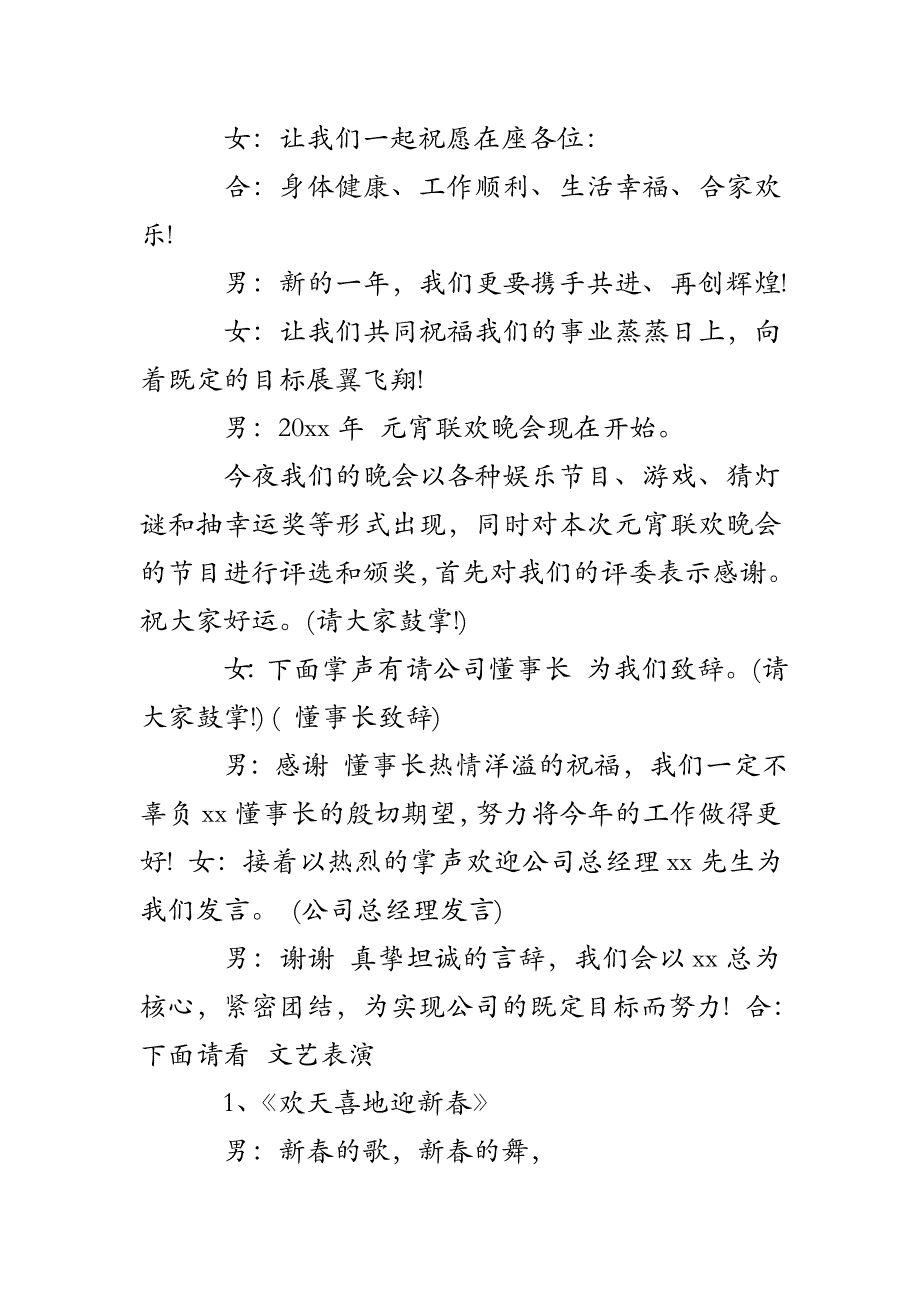 女：让我们一起祝愿在座各位：
合：身体健康、工作顺利、生活幸福、合家欢
乐!
男：新的一年，我们更要携手共进、再创辉煌!
女：让我们共同祝福我们的事业蒸蒸日上，向
着既定的目标展翼飞翔!
男：20xx 年 元宵联欢晚会现在开始。
今夜我们的晚会以各种娱乐节目、游戏、猜灯
谜和抽幸运奖等形式出现，同时对本次元宵联欢晚会
的节目进行评选和颁奖，首先对我们的评委表示感谢。
祝大家好运。(请大家鼓掌!)
女：下面掌声有请公司懂事长 为我们致辞。(请
大家鼓掌!) ( 懂事长致辞)
男：感谢 懂事长热情洋溢的祝福，我们一定不
辜负 xx 懂事长的殷切期望，努力将今年的工作做得更
好! 女：接着以热烈的掌声欢迎公司总经理 xx 先生为
我们发言。 (公司总经理发言)
男：谢谢 真挚坦诚的言辞，我们会以 xx 总为
核心，紧密团结，为实现公司的既定目标而努力! 合：
下面请看 文艺表演
1、《欢天喜地迎新春》
男：新春的歌，新春的舞，